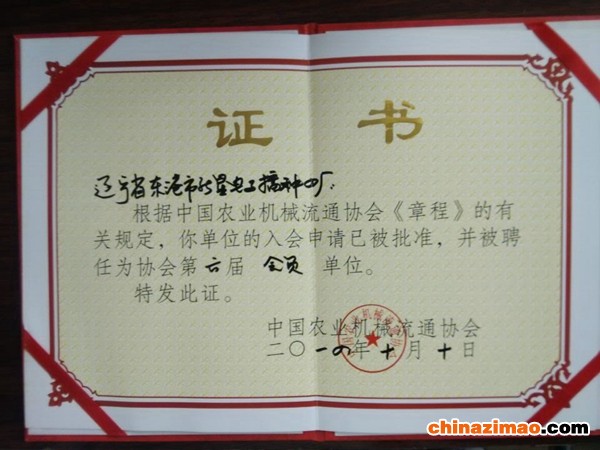 证 书
辽宁省东港市
根据中国农业机械流通协会《章程》的有
关规定，你单位的入会申请已被批准，并被聘
任为协会第六届 会员 单位。
特发此证。
中国农业机械流通协会
二〇一四年十月十日
chinazimao.com